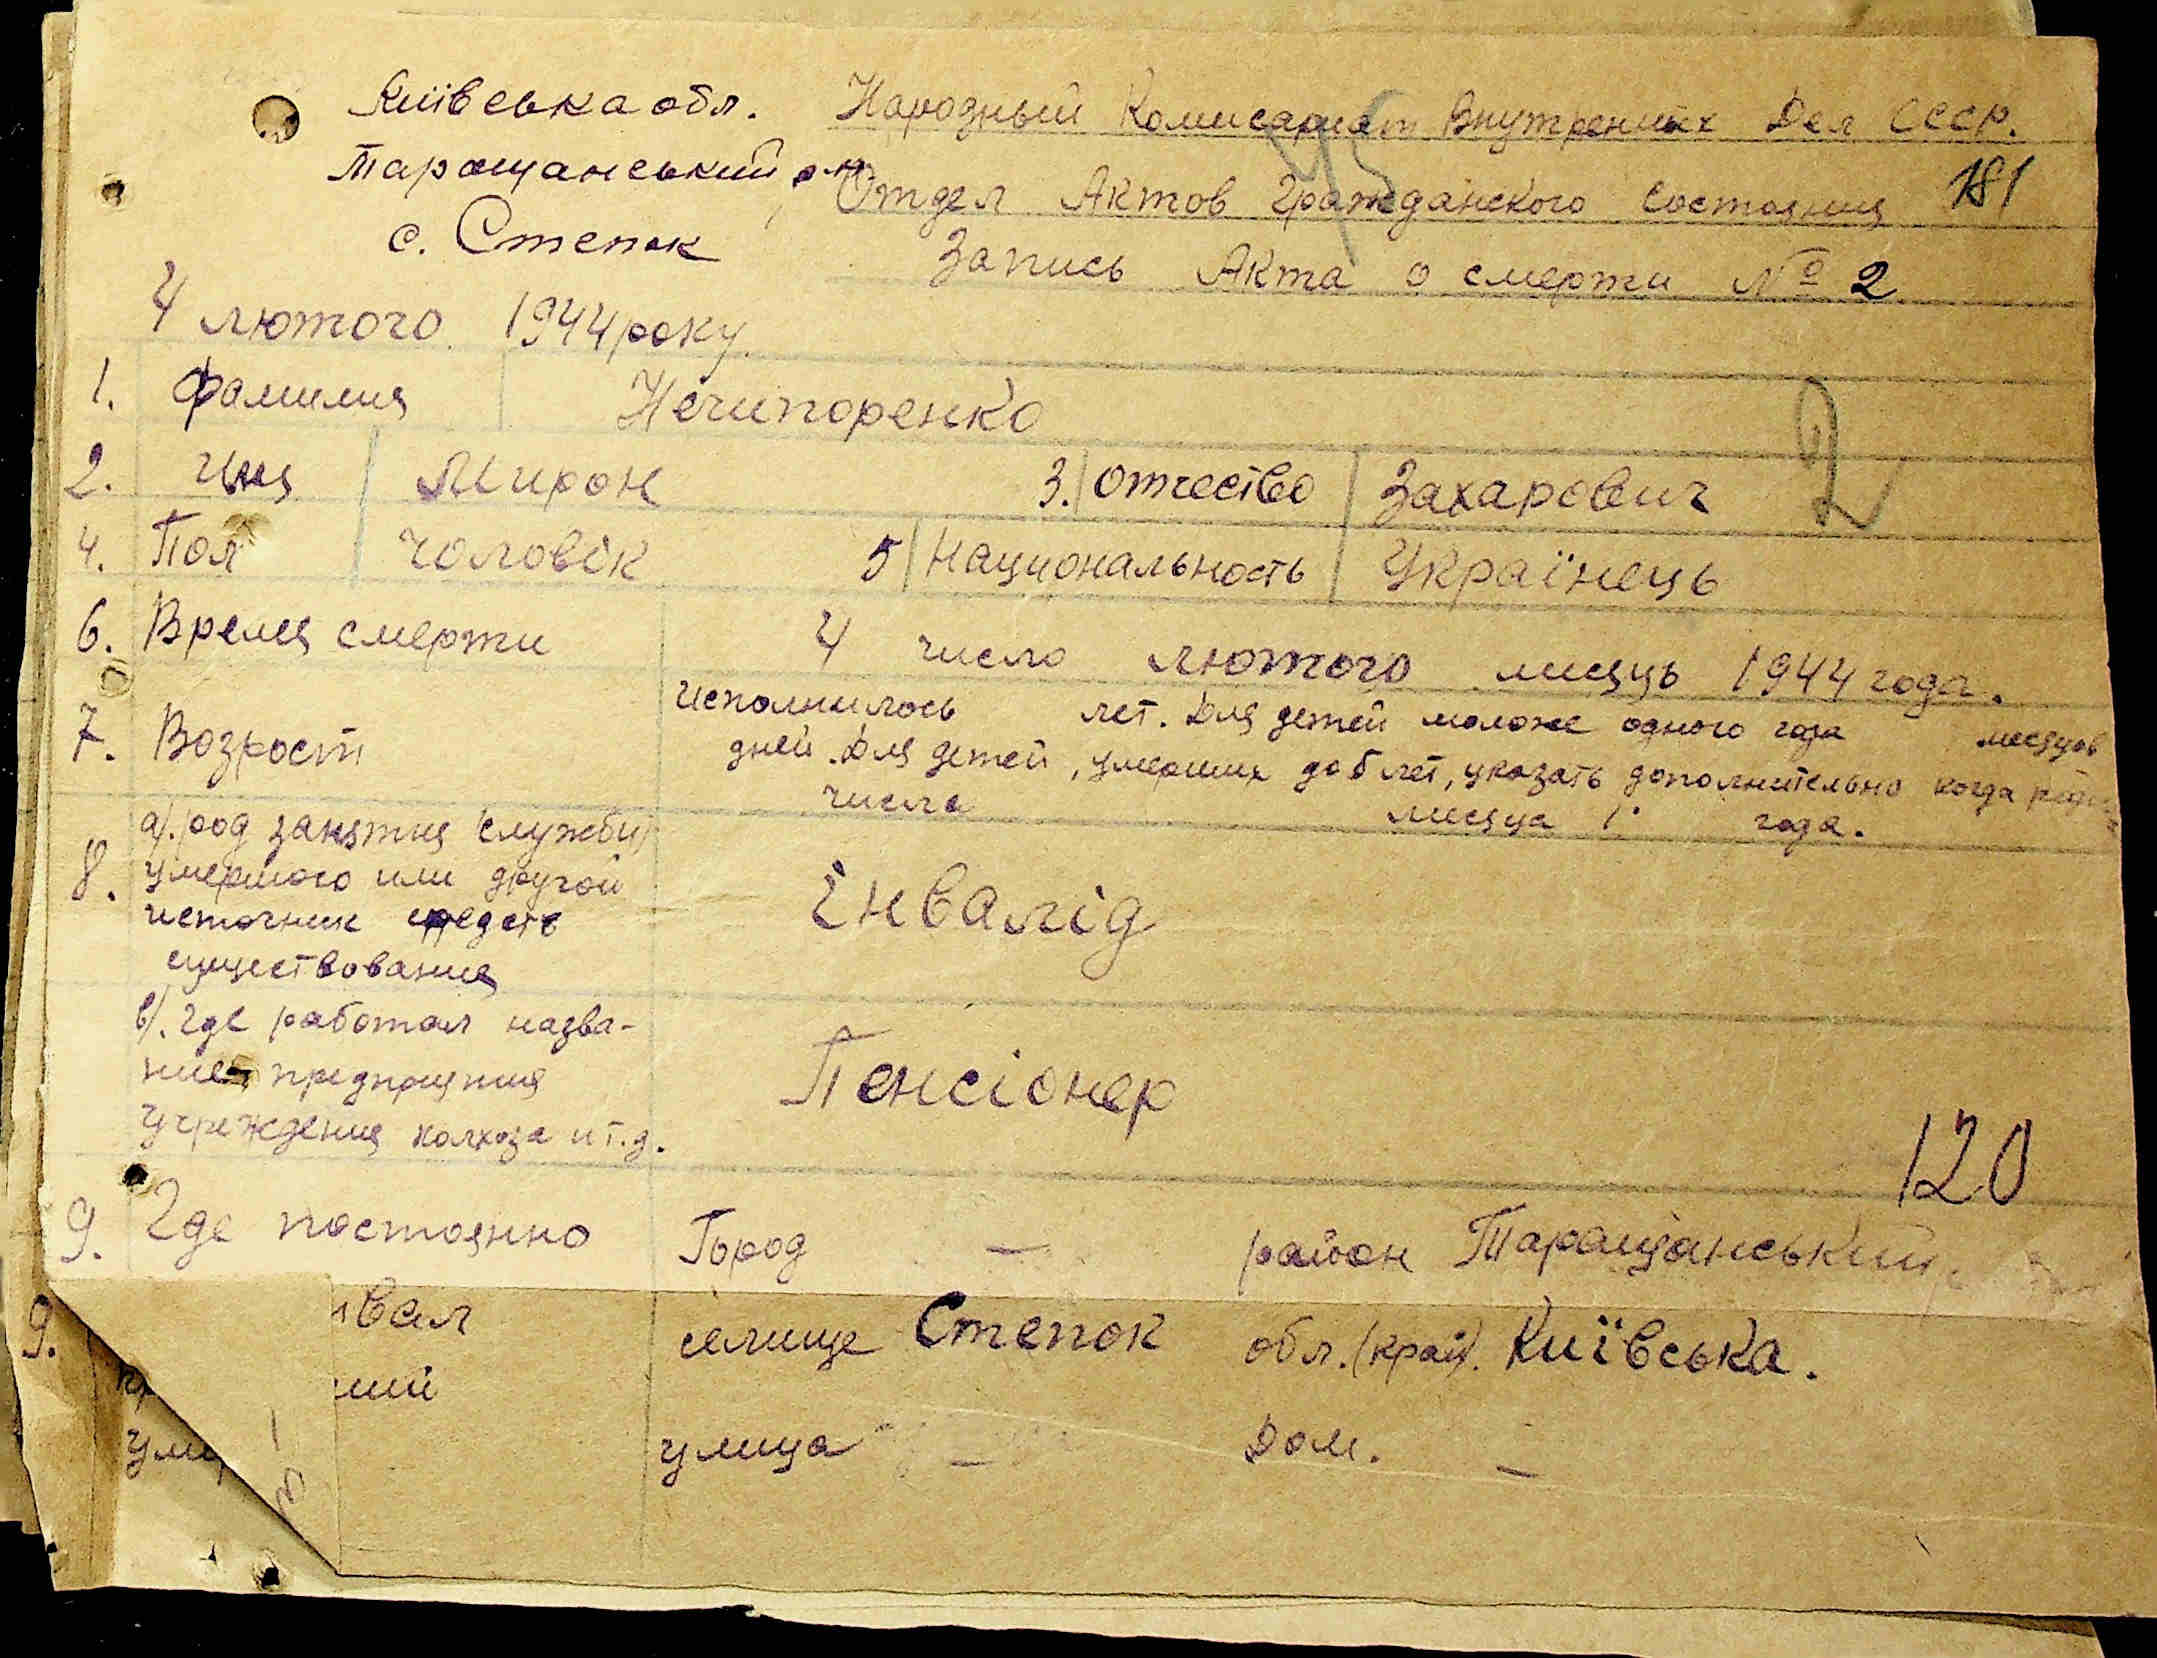 Київська обл.
Таращанський р-н
с. Степок
Народный Комисариат Внутренних Дел СССР.
Отдел Актов Гражданского Состояния 181
Запись Акта о смерти № 2
4 лютого 1944 року.
1. Фамилия Нечипоренко
2
2. Имя Мирон 3. Отчество Захарович
4. Пол Чоловік 5 Национальность Українець
6. Время смерти 4 число лютого місяць 1944 года.
7. Возраст Исполнилось лет. Для детей моложе одного года месяцов
дней. Для детей, умерших до 5 лет, указать дополнительно когда
число месяца 1 года.
8. а). род занятия службы
умершого или другой
источник средств
существования
Інвалід
в). Где работал назва-
ние предприятия
учреждения колхоза и т.д.
Пенсіонер
120
9. Где постоянно Город — район Таращанський
9. ивал селище Степок обл. (край). Київська.
ший
улица — Дом. —